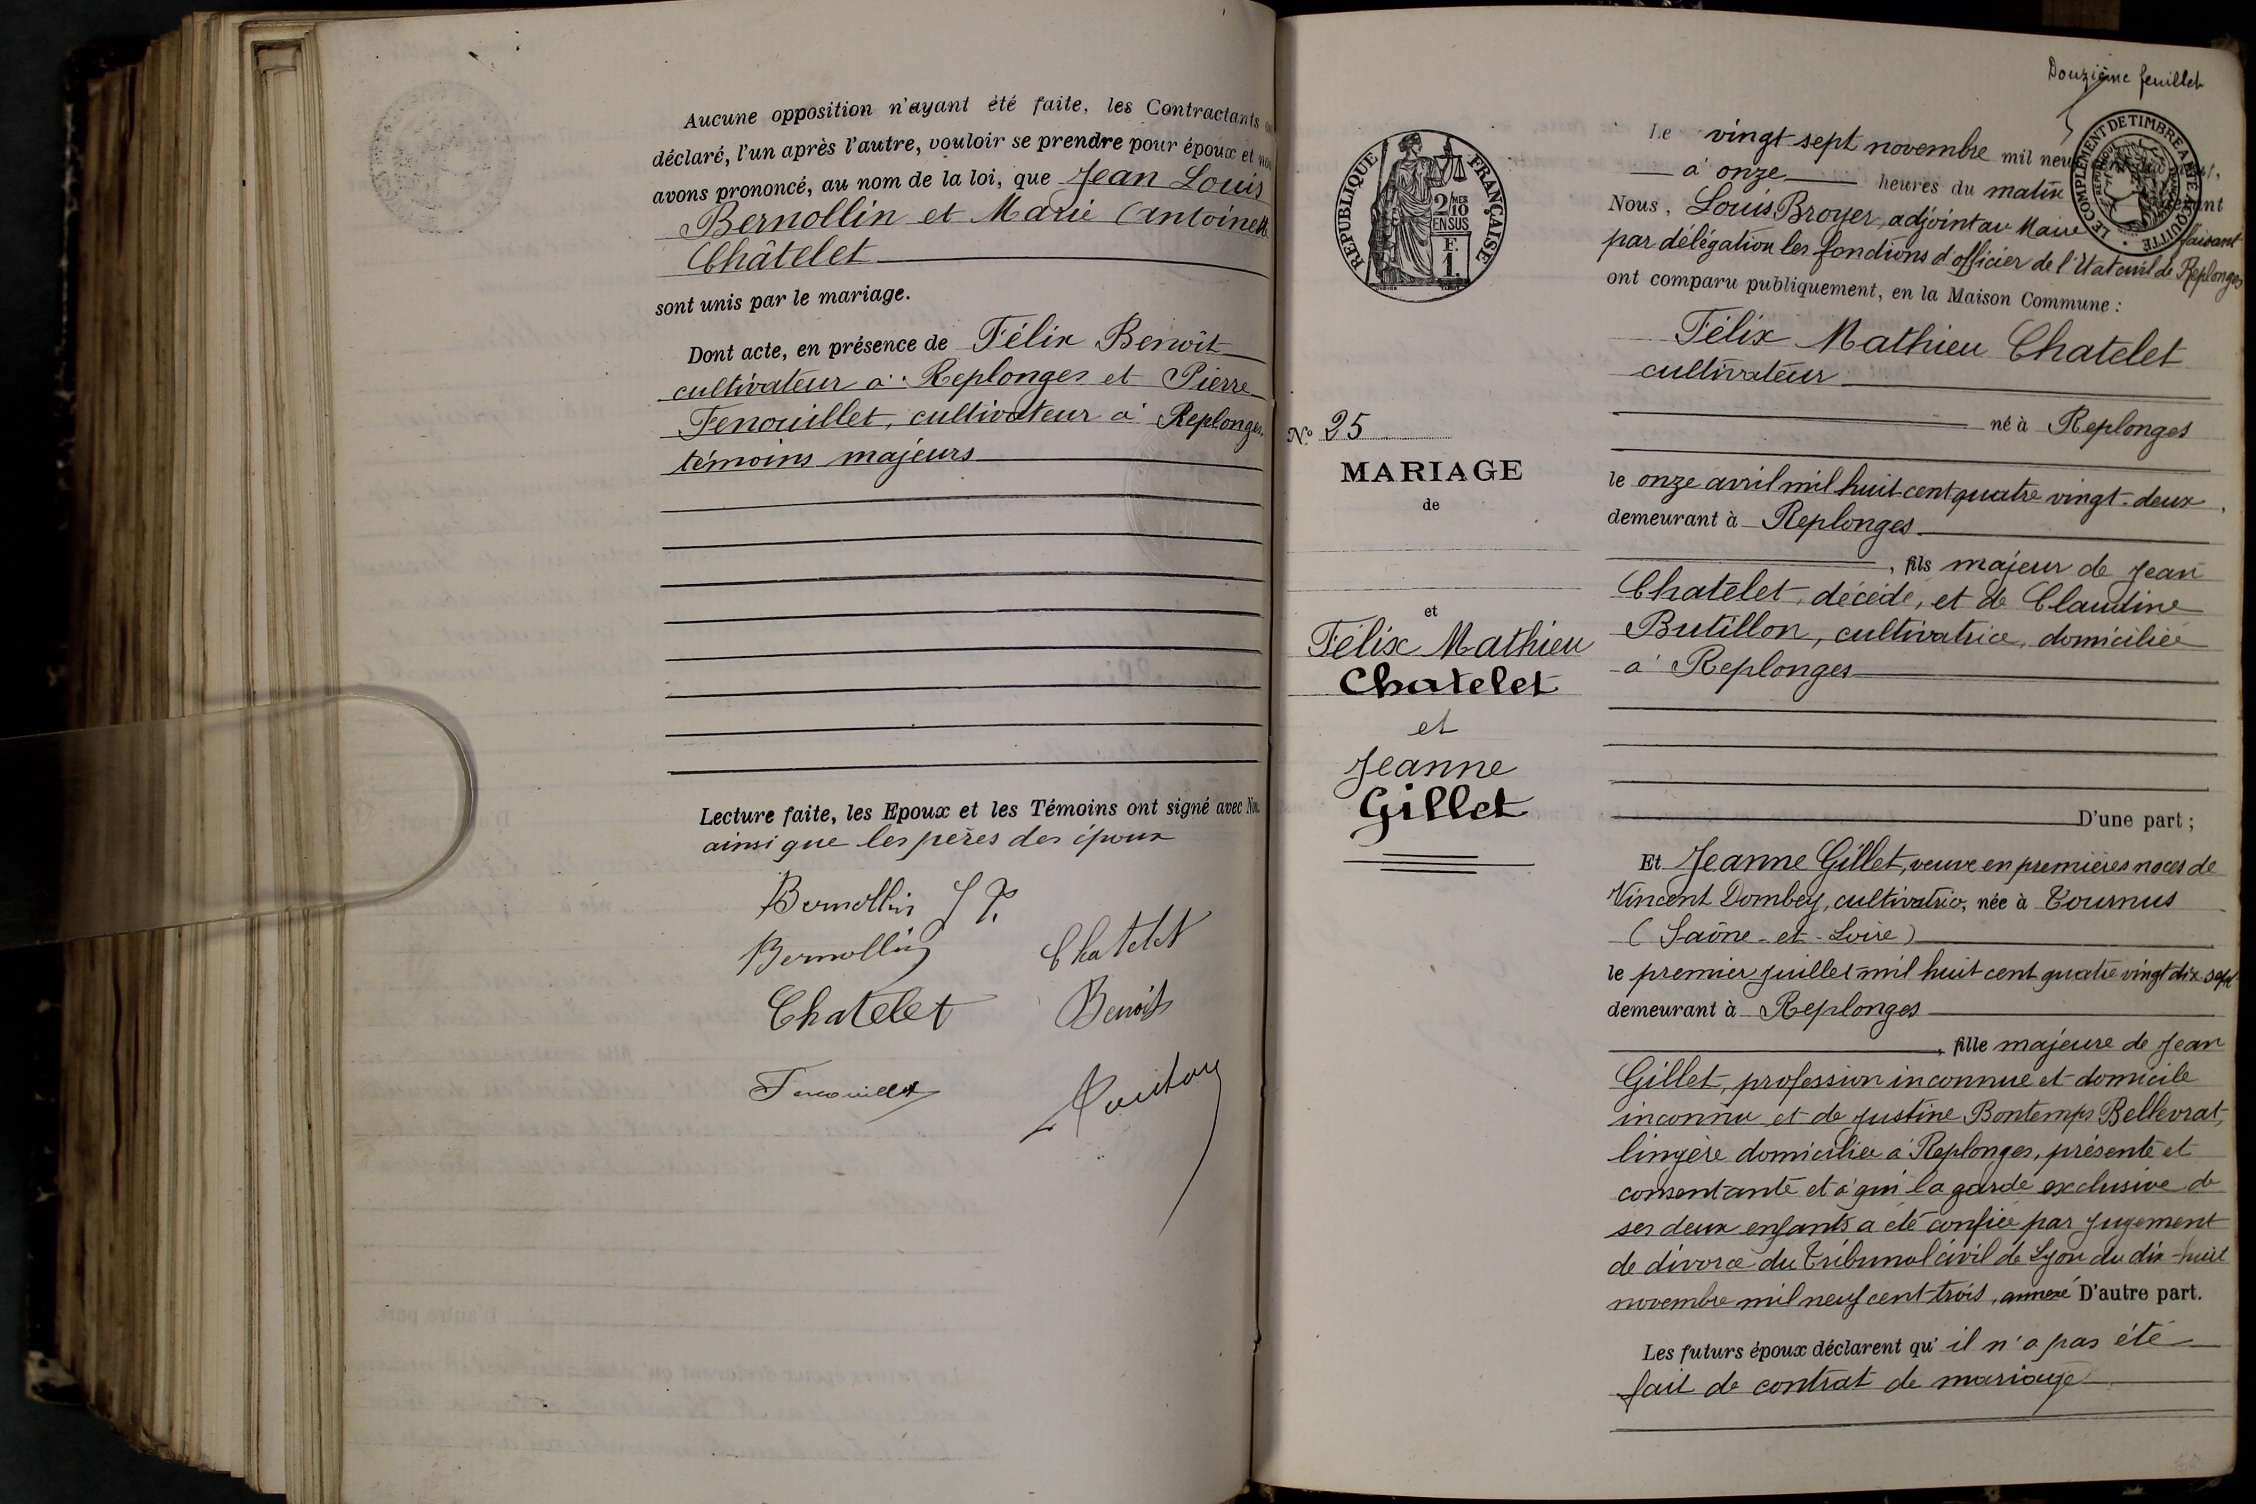 Aucune opposition n'ayant été faite, les Contractants
déclaré, l'un après l'autre, vouloir se prendre pour époux et
avons prononcé, au nom de la loi, que Jean Louis
Bernollin et Marie Antoinette
Châtelet
sont unis par le mariage.
Dont acte, en présence de Félix Benoît
cultivateur à Replonges et Pierre
Fenouillet, cultivateur à Replonges,
témoins majeurs
Lecture faite, les Epoux et les Témoins ont signé avec Nous
ainsi que les pères des époux
Bernollin J L
Bernollin Chatelet
Chatelet Benoit
Fenouillet
Douzième feuillet
RÉPUBLIQUE FRANÇAISE
2/10 MES
EN SUS
F.
1.
LE COMPLÉMENT DE TIMBRE A ÉTÉ ACQUITTÉ
N° 25
MARIAGE
de
et
Félix Mathieu
Chatelet
et
Jeanne
Gillet
Le vingt sept novembre mil neuf
à onze heures du matin
Nous, Louis Broyer, adjoint au Maire faisant
par délégation les fonctions d'officier de l'Etat civil de Replonges
ont comparu publiquement, en la Maison Commune :
Félix Mathieu Chatelet
cultivateur
né à Replonges
le onze avril mil huit cent quatre vingt-deux,
demeurant à Replonges
, fils majeur de Jean
Chatelet, décédé, et de Claudine
Butillon, cultivatrice, domiciliée
à Replonges
D'une part ;
Et Jeanne Gillet, veuve en premières noces de
Vincent Dombey, cultivatrice, née à Tournus
(Saône-et-Loire)
le premier juillet mil huit cent quatre vingt dix sept
demeurant à Replonges
, fille majeure de Jean
Gillet, profession inconnue et domicile
inconnu et de Justine Bontemps Bellevrat,
lingère domiciliée à Replonges, présente et
consentante et à qui la garde exclusive de
ses deux enfants a été confiée par jugement
de divorce du Tribunal civil de Lyon du dix-huit
novembre mil neuf cent trois, annexé D'autre part.
Les futurs époux déclarent qu'il n'a pas été
fait de contrat de mariage